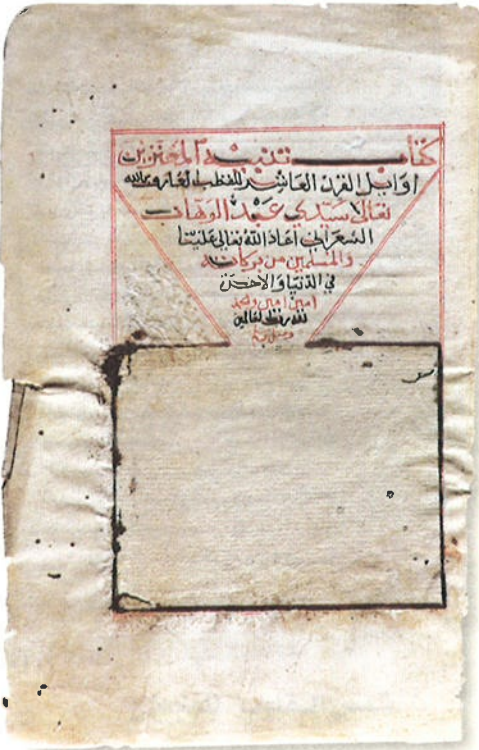 كتاب تنبيه المغترين
اوايل القرن العاشر للقطب العارف بالله
تعالا سيدي عبد الوهاب
الشعراني اعاذ الله تعالى علينا
والمسلمين من بركاته
في الدنيا والاخرة
امين امين والحمد
لله رب العالمين